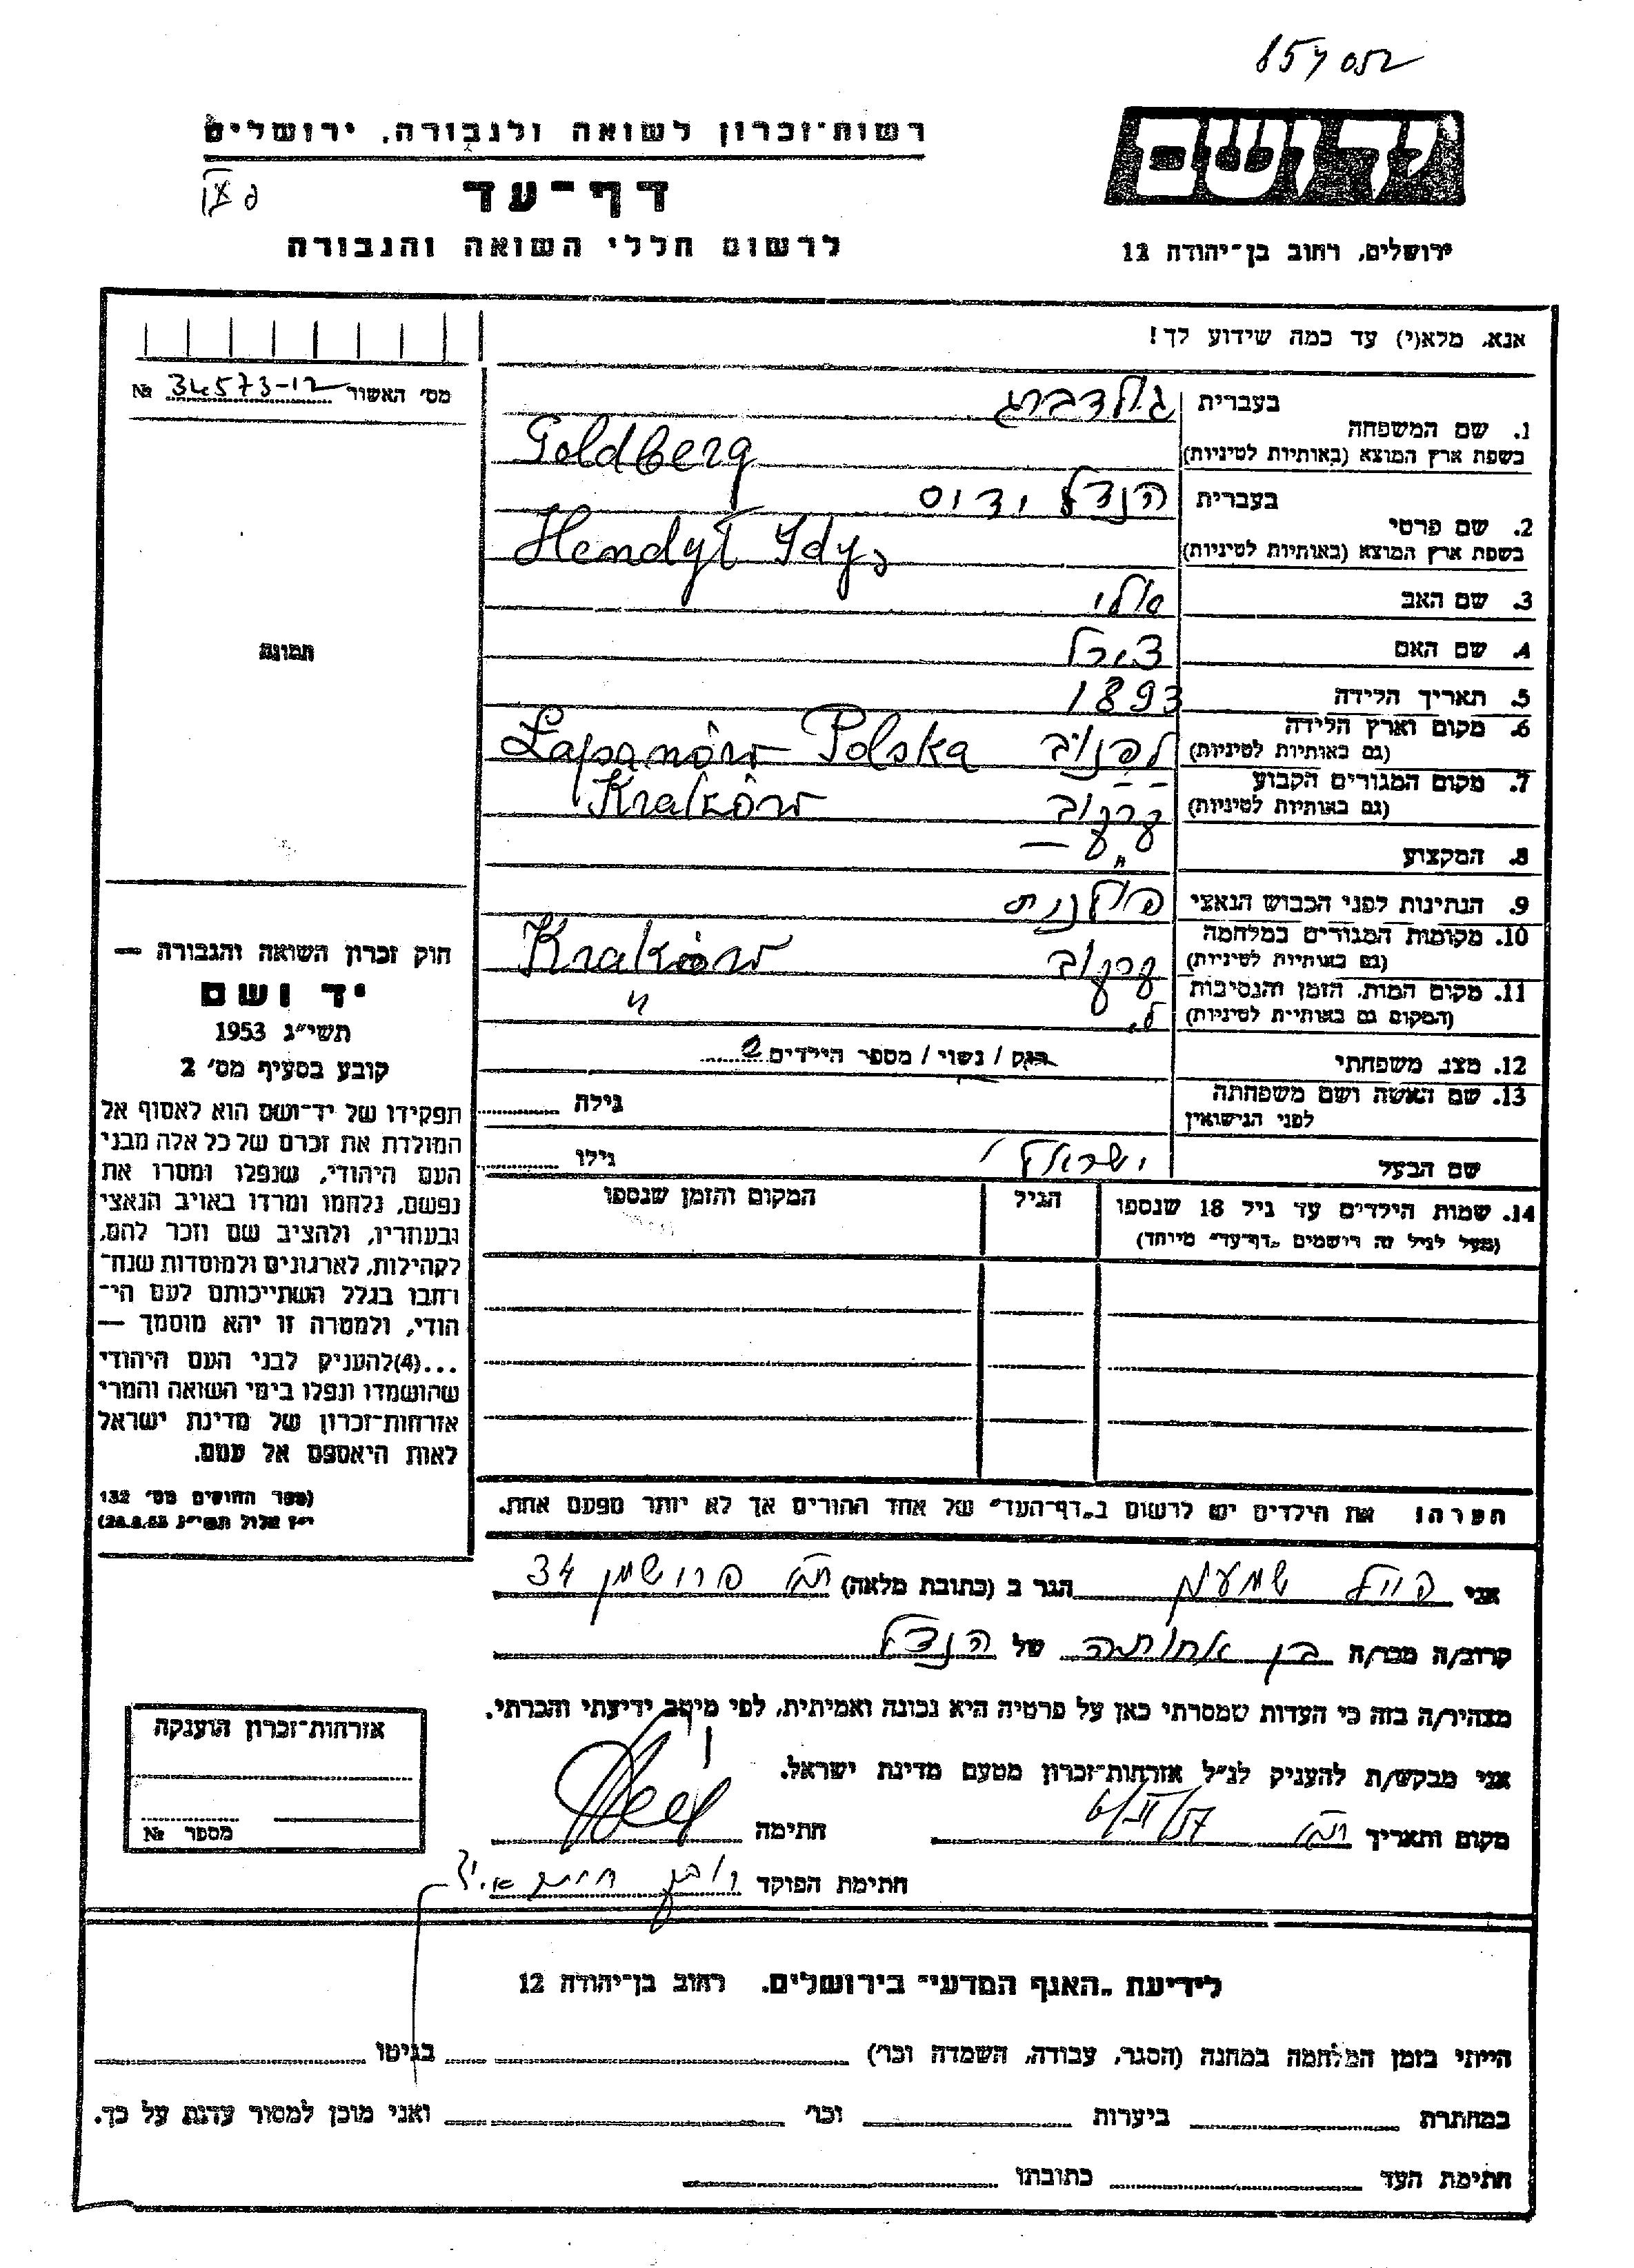 857052
רשות־זכרון לשואה ולגבורה, ירושלים
דף־עד
לרשום חללי השואה והגבורה
יד ושם
ירושלים, רחוב בן־יהודה 12
אנא, מלא(י) עד כמה שידוע לך!
מס׳ האשור 34573-12 №
1. שם המשפחה
בעברית גולדברג
בשפת ארץ המוצא (באותיות לטיניות) Goldberg
2. שם פרטי
בעברית הנדל ידיס
בשפת ארץ המוצא (באותיות לטיניות) Hendył Idys
3. שם האב
4. שם האם צירל
5. תאריך הלידה 1893
6. מקום וארץ הלידה
(גם באותיות לטיניות) לפנוב Łapanów Polska
7. מקום המגורים הקבוע
(גם באותיות לטיניות) קרקוב Kraków
8. המקצוע
9. הנתינות לפני הכבוש הנאצי פולנית
10. מקומות המגורים במלחמה
(גם באותיות לטיניות) קרקוב Kraków
11. מקום המות, הזמן והנסיבות
(המקום גם באותיות לטיניות)
12. מצב משפחתי רוק / נשוי / מספר הילדים
13. שם האשה ושם משפחתה
לפני הנישואין
גילה
שם הבעל ישראל
גילו
14. שמות הילדים עד גיל 18 שנספו
(מעל לגיל זה רושמים „דף־עד״ מיוחד)
הגיל
המקום והזמן שנספו
הערה! את הילדים יש לרשום ב„דף־העד״ של אחד ההורים אך לא יותר מפעם אחת.
תמונה
חוק זכרון השואה והגבורה —
יד ושם
תשי״ג 1953
קובע בסעיף מס׳ 2
תפקידו של יד־ושם הוא לאסוף אל
המולדת את זכרם של כל אלה מבני
העם היהודי, שנפלו ומסרו את
נפשם, נלחמו ומרדו באויב הנאצי
ובעוזריו, ולהציב שם וזכר להם,
לקהילות, לארגונים ולמוסדות שנח־
רבו בגלל השתייכותם לעם הי־
הודי, ולמטרה זו יהא מוסמך —
...(4)להעניק לבני העם היהודי
שהושמדו ונפלו בימי השואה והמרי
אזרחות־זכרון של מדינת ישראל
לאות היאספם אל עמם.
(ספר החוקים מס׳ 132
י״ז אלול תשי״ג 28.8.53)
אני שמעון הגר ב (כתובת מלאה) 34
קרוב/ה מכר/ה בן אחותה של הנדל
מצהיר/ה בזה כי העדות שמסרתי כאן על פרטיה היא נכונה ואמיתית, לפי מיטב ידיעתי והכרתי.
אני מבקש/ת להעניק לנ״ל אזרחות־זכרון מטעם מדינת ישראל.
מקום ותאריך 6/II/57 חתימה
חתימת הפוקד
אזרחות־זכרון הוענקה
מספר №
לידיעת „האגף המדעי״ בירושלים, רחוב בן־יהודה 12
הייתי בזמן המלחמה במחנה (הסגר, עבודה, השמדה וכו׳) בגיטו
במחתרת ביערות וכו׳ ואני מוכן למסור עדות על כך.
חתימת העד כתובתו